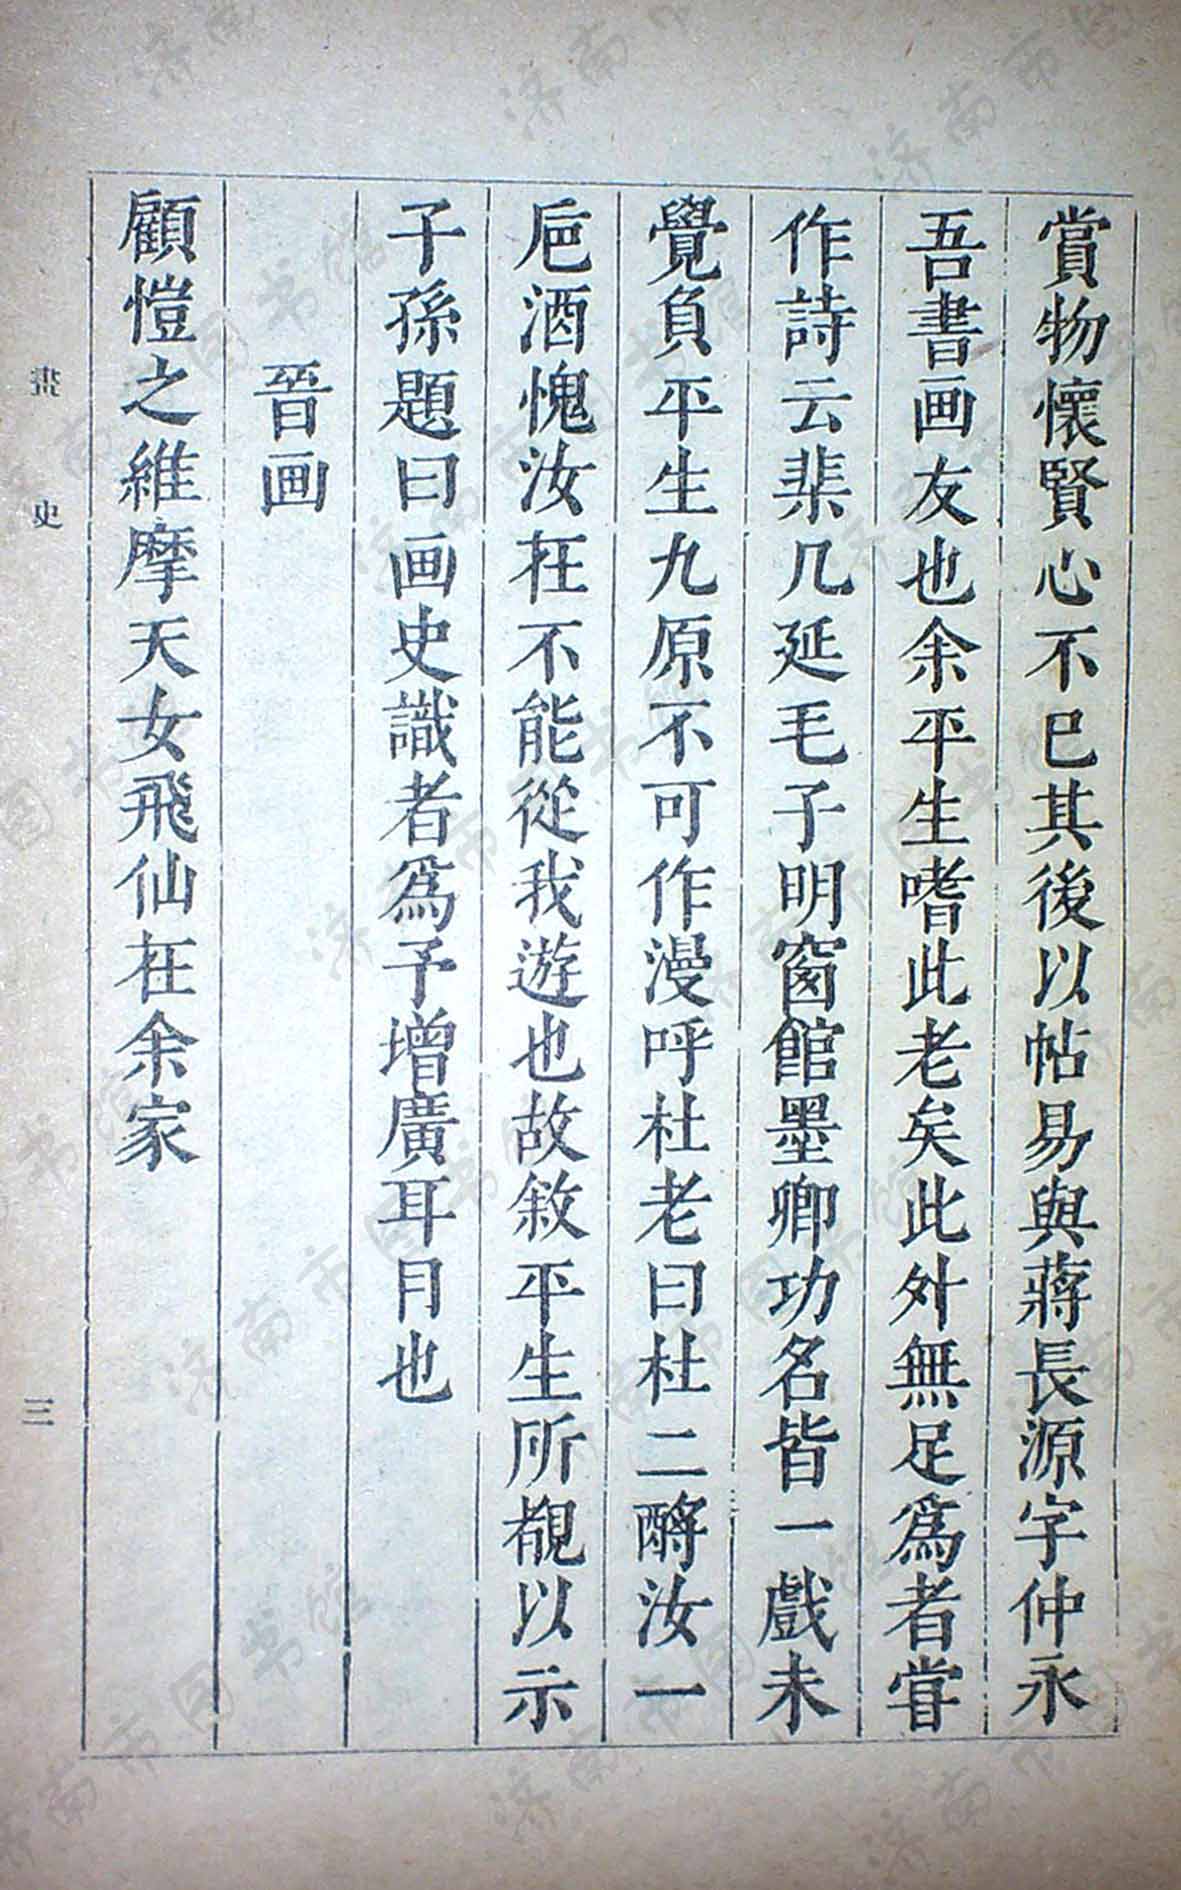 賞物懷賢心不已其後以帖易與蔣長源字仲永
吾書画友也余平生嗜此老矣此外無足爲者甞
作詩云棐几延毛子明窗館墨卿功名皆一戲未
覺負平生九原不可作漫呼杜老曰杜二酹汝一
巵酒愧汝在不能從我遊也故敘平生所覩以示
子孫題曰画史識者爲予增廣耳目也
晉画
顧愷之維摩天女飛仙在余家
畫史
三
济南市图书馆